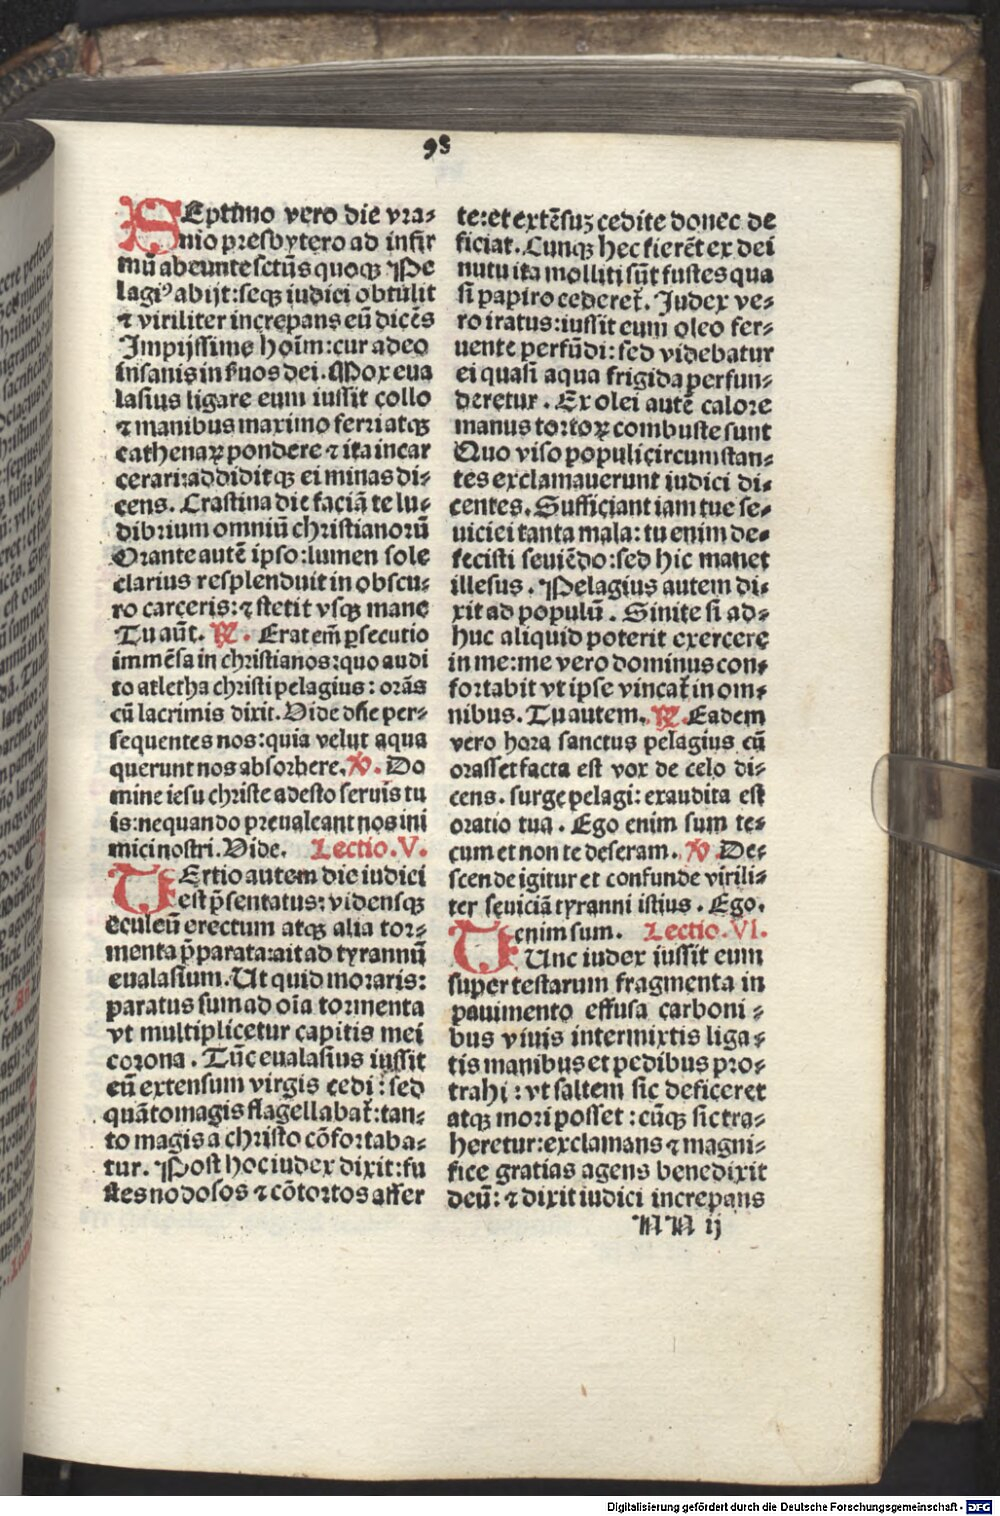 98
SEptimo vero die vra⸗
nio presbytero ad infir
mū abeunte sctūs quoqꝫ Pe
lagiꝰ abijt: seqꝫ iudici obtulit
⁊ viriliter increpans eū dicēs
Impijssime hoīm: cur adeo
insanis in ẜuos dei. Mox eua
lasius ligare eum iussit collo
⁊ manibus maximo ferri atqꝫ
cathenaꝝ pondere ⁊ ita incar
cerari: addidit qꝫ ei minas di⸗
cens. Crastina die faciā te lu⸗
dibrium omniū christianorū
Orante autē ipso: lumen sole
clarius resplenduit in obscu⸗
ro carceris: ⁊ stetit vsqꝫ mane
Tu aūt. ℟. Erat em̄ ꝑsecutio
immēsa in christianos: quo audi
to atletha christi pelagius: orās
cū lacrimis dixit. Vide dn̄e per⸗
sequentes nos: quia velut aqua
querunt nos absorbere. ℣. Do
mine iesu christe adesto seruis tu
is: nequando preualeant nos ini
mici nostri. Vide. Lectio. V.
TErtio autem die iudici
est p̄sentatus: vidensqꝫ
eculeū erectum atqꝫ alia tor⸗
menta p̄parata: ait ad tyrannū
eualasium. Ut quid moraris:
paratus sum ad oīa tormenta
vt multiplicetur capitis mei
corona. Tūc eualasius iussit
eū extensum virgis cedi: sed
quātomagis flagellabat᷑: tan⸗
to magis a christo cōfortaba⸗
tur. Post hoc iudex dixit: fu
stes nodosos ⁊ cōtortos affer
te: et extēsuꝫ cedite donec de
ficiat. Cunqꝫ hec fierēt ex dei
nutu ita molliti sūt fustes qua
si papiro cederet᷑. Judex ve⸗
ro iratus: iussit eum oleo fer⸗
uente perfūdi: sed videbatur
ei quasi aqua frigida perfun⸗
deretur. Ex olei autē calore
manus tortoꝝ combuste sunt
Quo viso populi circumstan⸗
tes exclamauerunt iudici di⸗
centes. Sufficiant iam tue se⸗
uiciei tanta mala: tu enim de⸗
fecisti seuiēdo: sed hic manet
illesus. Pelagius autem di⸗
xit ad populū. Sinite si ad⸗
huc aliquid poterit exercere
in me: me vero dominus con⸗
fortabit vt ipse vincat᷑ in om⸗
nibus. Tu autem. ℟. Eadem
vero hora sanctus pelagius cū
orasset facta est vox de celo di⸗
cens. surge pelagi: exaudita est
oratio tua. Ego enim sum te⸗
cum et non te deseram. ℣. De⸗
scende igitur et confunde virili⸗
ter seuiciā tyranni istius. Ego.
enim sum. Lectio. VI.
TUnc iudex iussit eum
super testarum fragmenta in
pauimento effusa carboni⸗
bus viuis intermixtis liga⸗
tis manibus et pedibus pro⸗
trahi: vt saltem sic deficeret
atqꝫ mori posset: cūqꝫ sic tra⸗
heretur: exclamans ⁊ magni⸗
fice gratias agens benedixit
deū: ⁊ dixit iudici increpans
NN ij
Digitalisierung gefördert durch die Deutsche Forschungsgemeinschaft - DFG